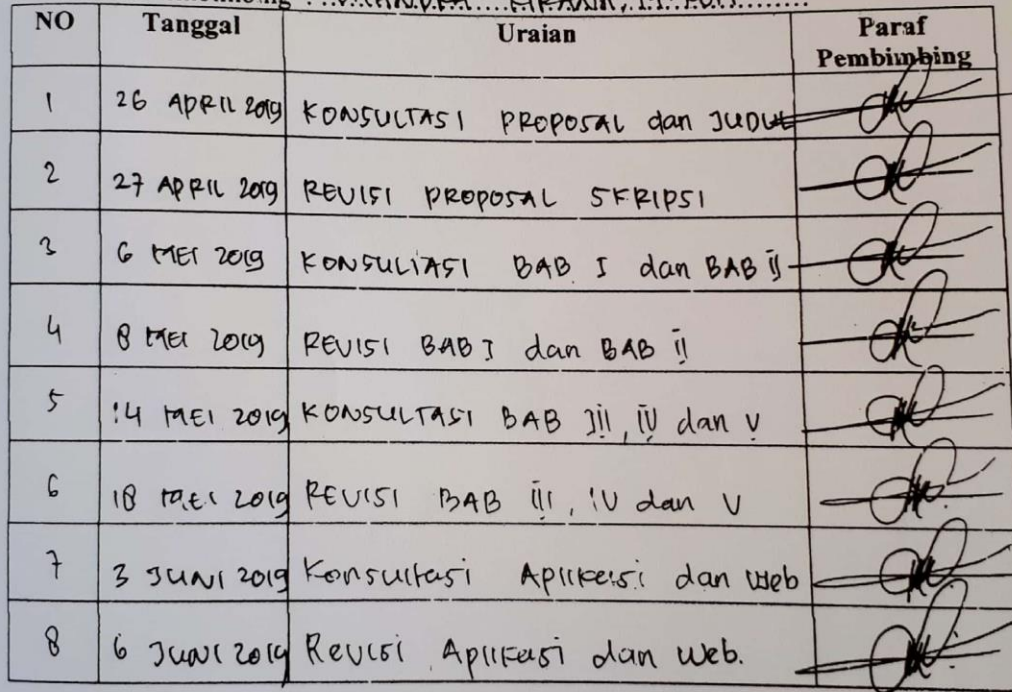 NO Tanggal Uraian Paraf
Pembimbing
1 26 APRIL 2019 KONSULTASI PROPOSAL dan JUDUL
2 27 APRIL 2019 REVISI PROPOSAL SKRIPSI
3 6 MEI 2019 KONSULTASI BAB I dan BAB II
4 8 MEI 2019 REVISI BAB I dan BAB II
5 14 MEI 2019 KONSULTASI BAB III, IV dan V
6 18 MEI 2019 REVISI BAB III, IV dan V
7 3 JUNI 2019 Konsultasi Aplikasi dan Web
8 6 JUNI 2019 Revisi Aplikasi dan Web.